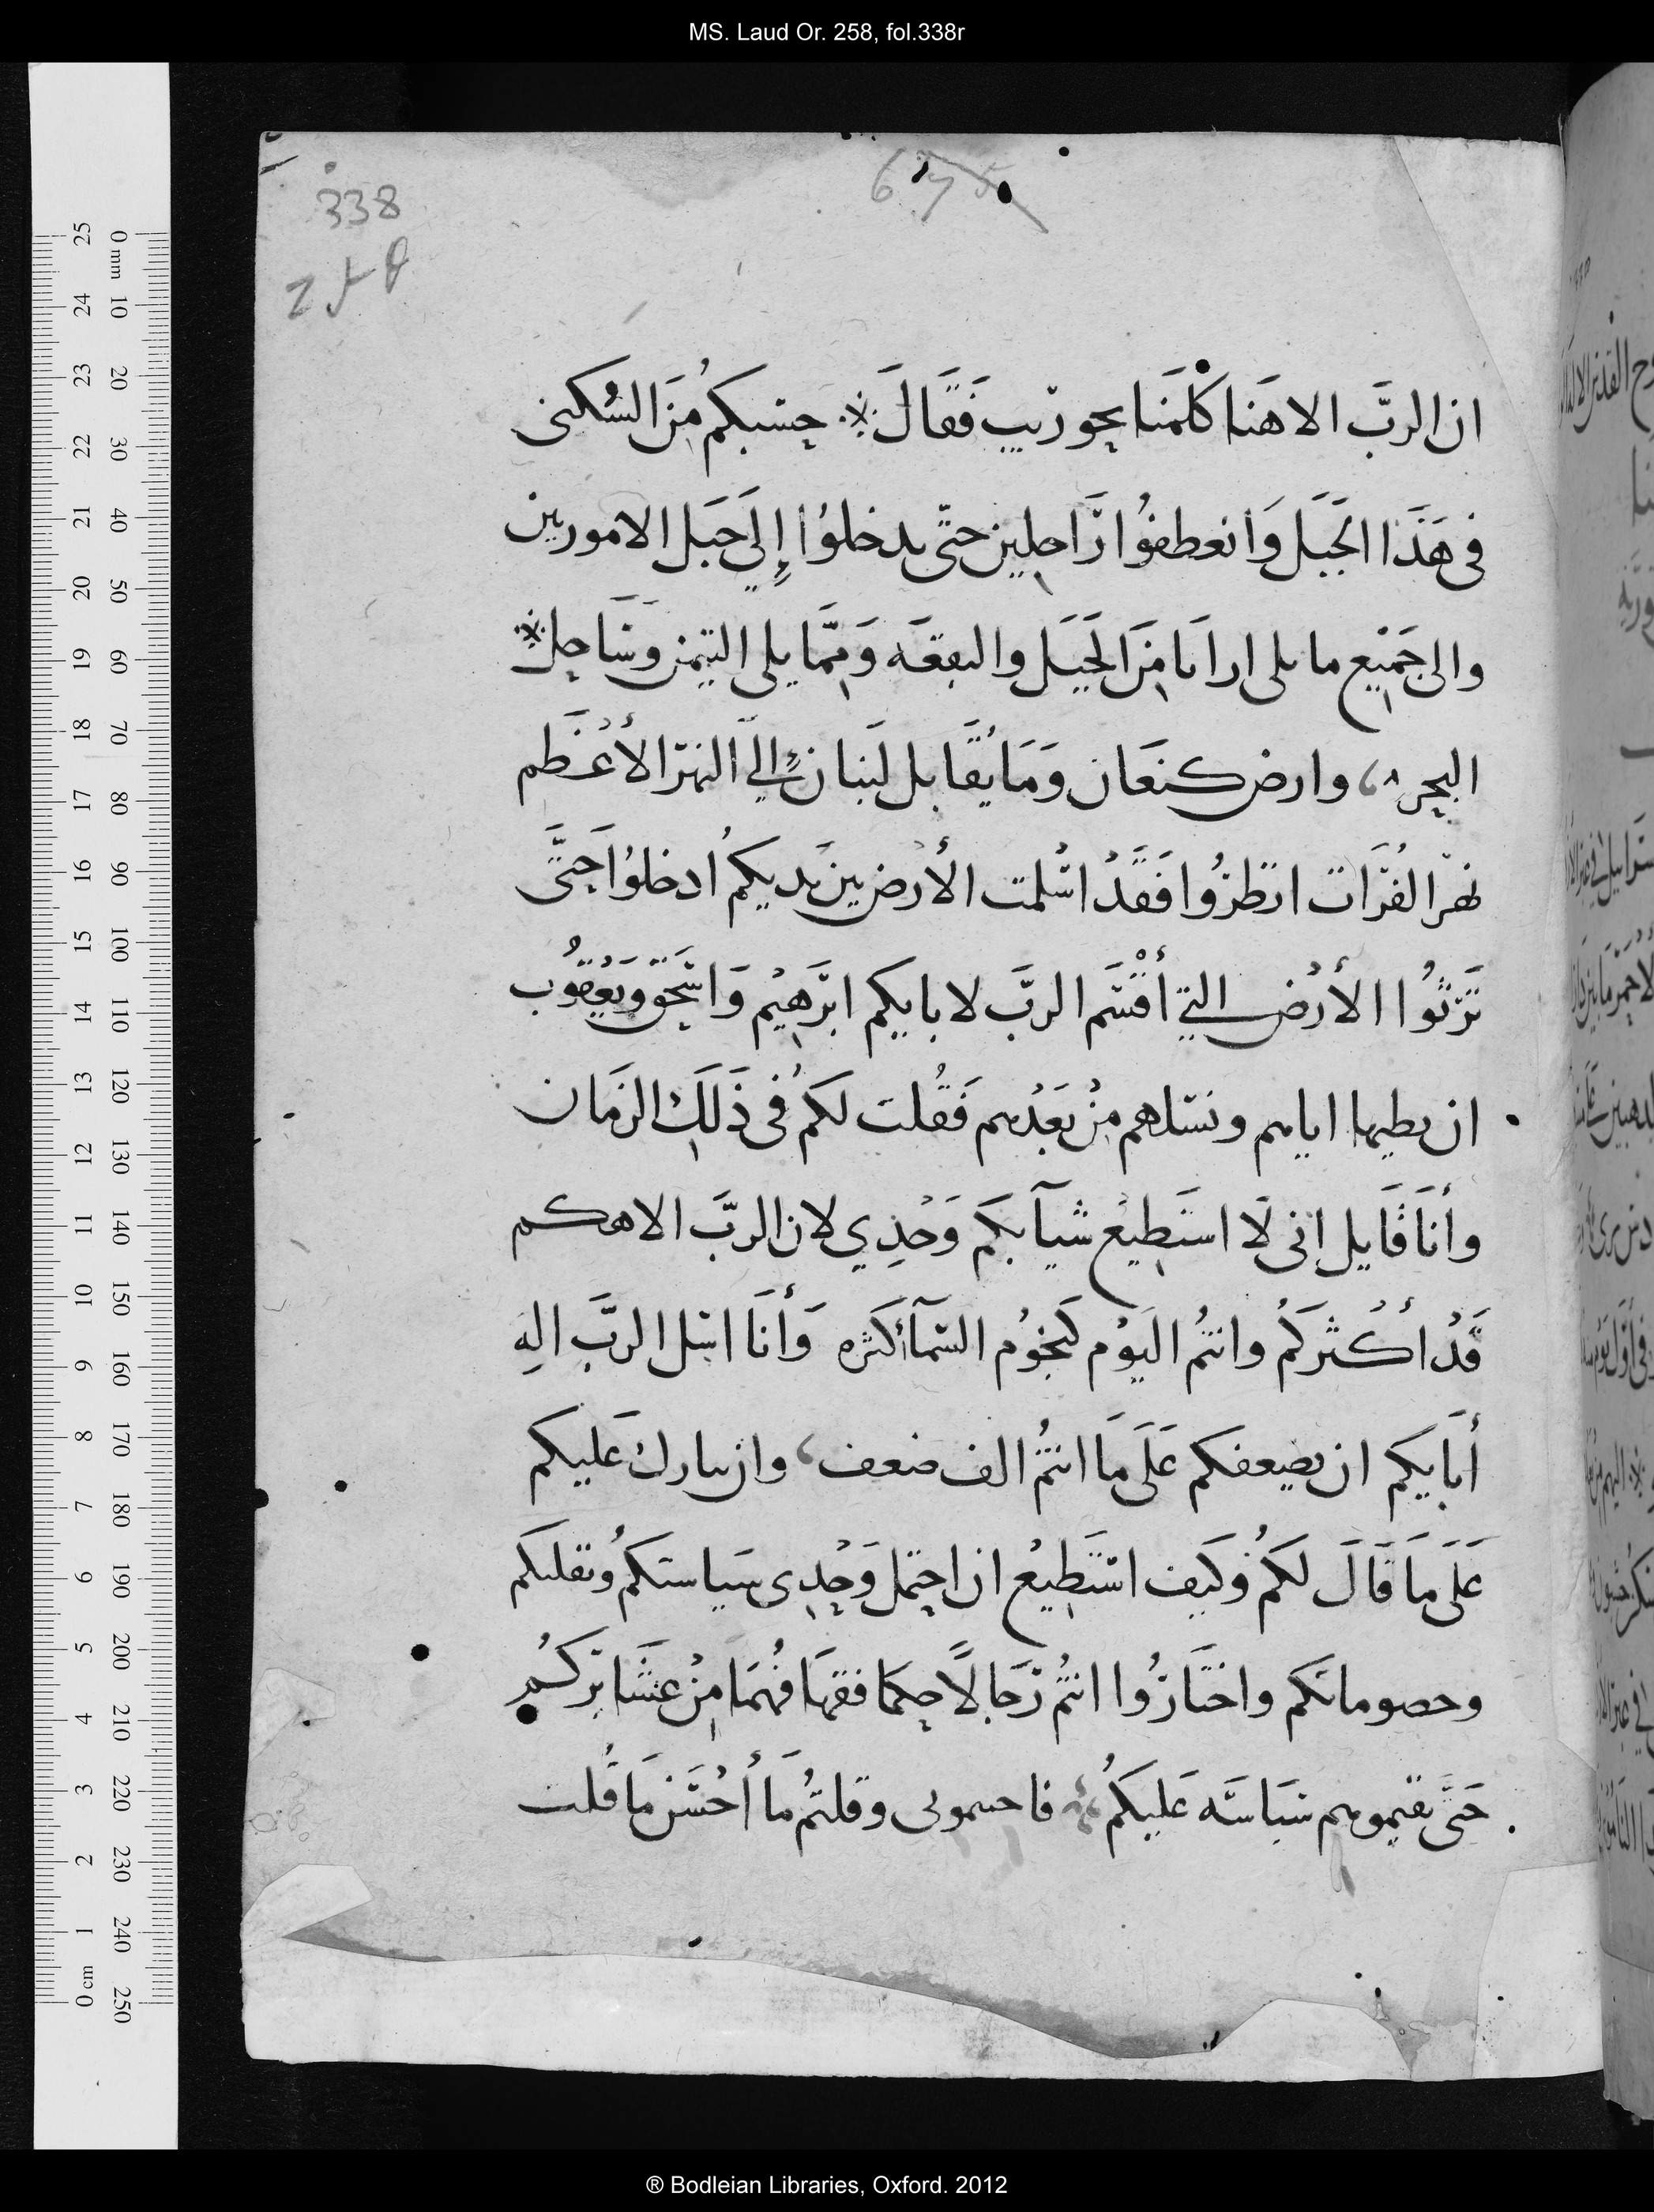 MS. Laud Or. 258, fol.338r
338
ان الرَّب الاهَنا كلمَنا بحوريب فَقَالَ حسْبكمُ مِنَ السُكنى
فى هَذَا الجَبَل وَانعطفوُا رَاحلِين حتّى تدخلوُا إِلَى جَبَل الاموريين
والى جَميْع ما يلى ارابَا مِنَ الجَبَل والبقعَه وَمِمَّا يلى التيمن وسَاحِل
البحر وارض كنعَان وَمَا يُقَابل لَبنان إِلَى النهر الأعْظَم
نهر الفُرَات انظرُوا فَقَدْ اسْلمت الأرض بين يديكمُ ادخلوُا حَتَّى
تَرثوُا الأرْض التي أقْسَم الربَّ لابايكم ابرَهِيْم وَاسْحَق وَيَعْقوُب
ان يطيها اياهم ونسلهم مِنْ بَعْدهم فَقُلت لكمُ فى ذَلِكَ الزمَان
وأنَا قَايل إنى لَا استَطِيْع شيآ بكم وَحْدِي لان الربَّ الاهكم
قَدْ أكْثركمُ وانتمُ اليَوْم كنجُوْم السَمآ كثره وَأنَا اسَل الربَّ اله
أبَايكم ان يضعفكم عَلَى مَا انتمُ الف ضعف وان يبارك عَليكم
عَلَى مَا قَالَ لكمُ وَكيَف اسْتَطِيْع ان احتمل وَحْدِى سِيَاستكمُ وثقلكم
وخصوماتكم واختَارُوا انتمُ رجَالًا حكما فقهَا فُهمَا مِنْ عشَايركُم
حَتى تقيموهم سيَاسَه عَليكمُ فاجبتمونى وقلتمُ مَا أحْسَن مَا قُلت
® Bodleian Libraries, Oxford. 2012